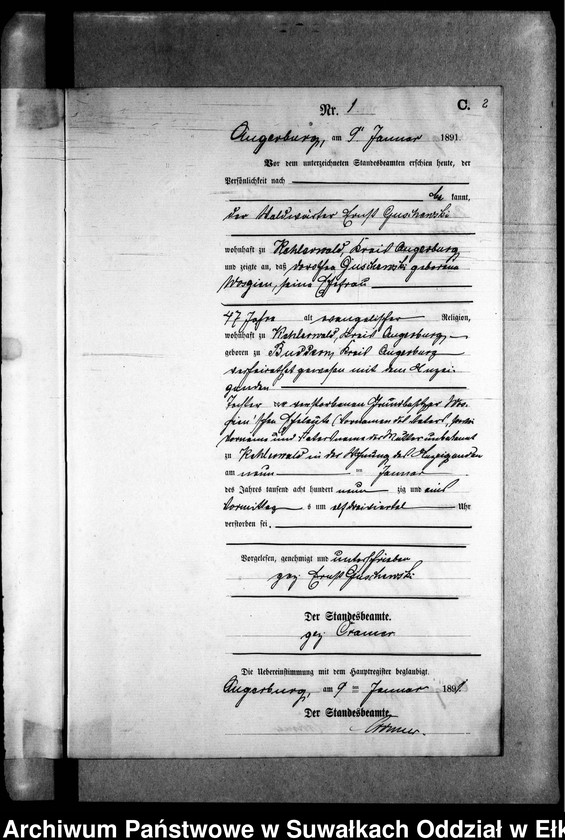 Nr. 1 C. 2
Angerburg, am 9ten Januar 1891.
Vor dem unterzeichneten Standesbeamten erschien heute, der
Persönlichkeit nach
be kannt,
der Waldwärter Ernst Guschewski
wohnhaft zu Kehlerwald, Kreis Angerburg
und zeigte an, daß Dorothea Guschewski geborene
Wosgien, seine Ehefrau
47 Jahre alt evangelischer Religion,
wohnhaft zu Kehlerwald, Kreis Angerburg
geboren zu Buddern, Kreis Angerburg
verheirathet gewesen mit dem Anzei-
genden
Tochter der verstorbenen Grundbesitzer Wos-
gien'schen Eheleute (Vornamen des Vaters,
Vorname und Vatersname der Mutter unbekannt
zu Kehlerwald in der Wohnung des Anzeigenden
am neun ten Januar
des Jahres tausend acht hundert neun zig und eins
Vormittag s um elfdreiviertel Uhr
verstorben sei.
Vorgelesen, genehmigt und unterschrieben
gez Ernst Guschewski
Der Standesbeamte.
gez Cramer
Die Uebereinstimmung mit dem Hauptregister beglaubigt.
Angerburg, am 9 ten Januar 1891
Der Standesbeamte.
Cramer.
Archiwum Państwowe w Suwałkach Oddział w Ełk